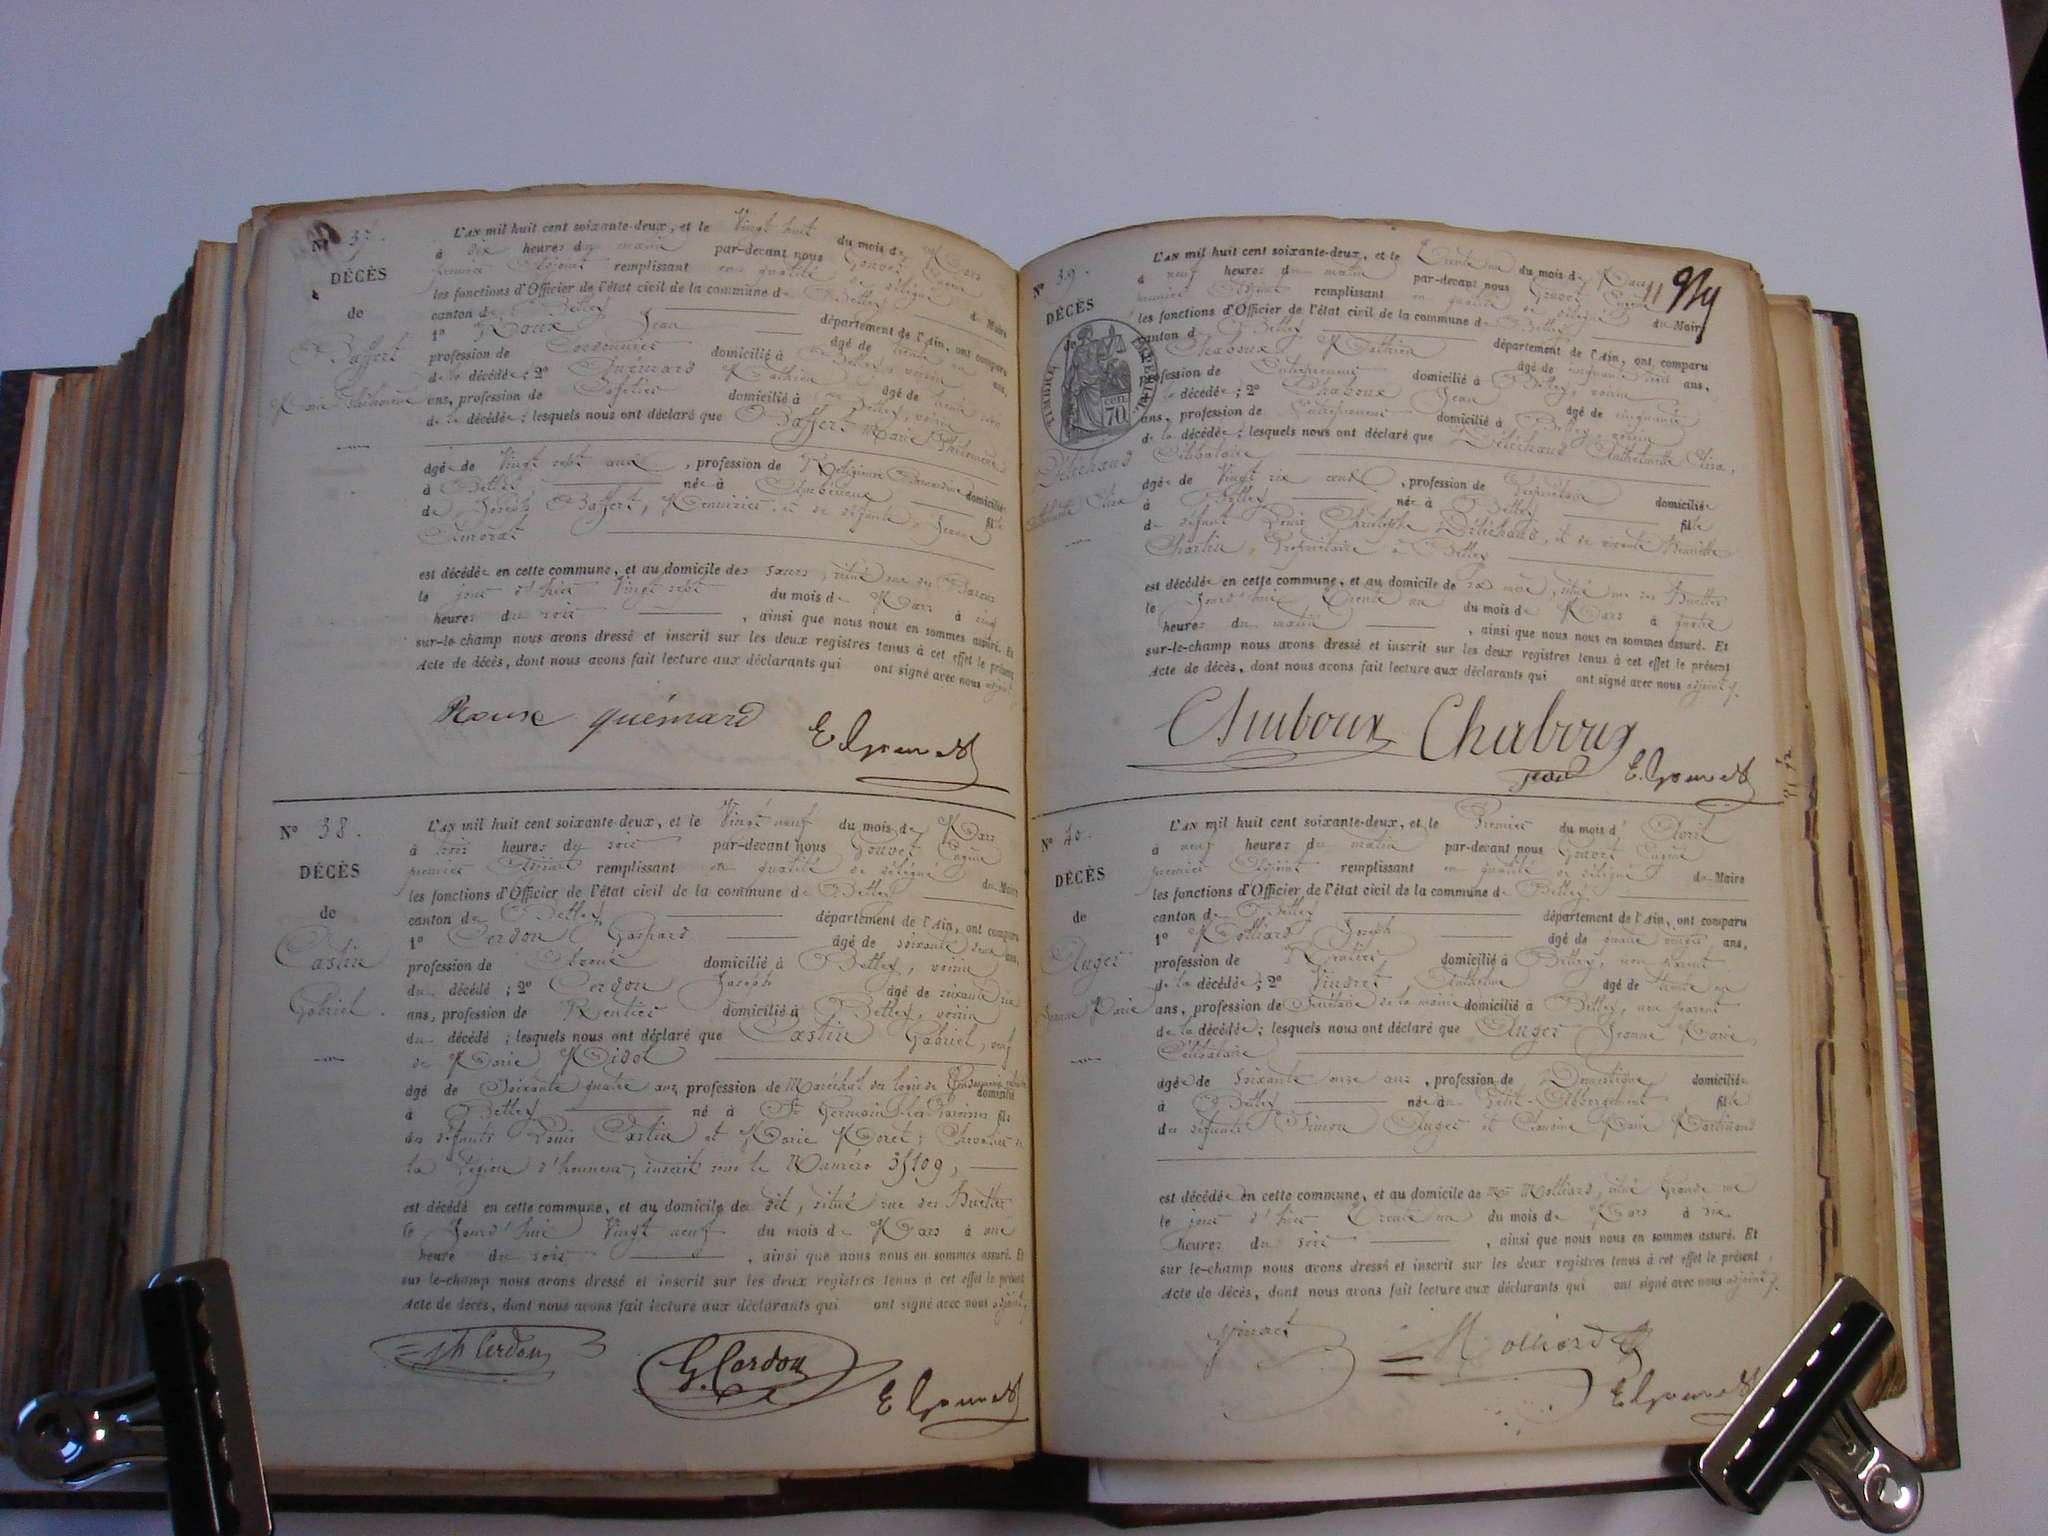 N° 37.
DÉCÈS
de
Baffert
Marie Philomène
L'AN mil huit cent soixante-deux, et le Vingt huit du mois de Mars
à dix heures du matin par-devant nous Gouvet Eugène
premier Adjoint remplissant en qualité de délégué du Maire
les fonctions d'Officier de l'état civil de la commune de Belley
canton de Belley département de l'Ain, ont comparu
1° Roux Jean âgé de trente ans,
profession de Cordonnier domicilié à Belley, voisin
de la décédée; 2° Quémard Mathieu âgé de trente
ans, profession de Cafetier domicilié à Belley, voisin
de la décédée; lesquels nous ont déclaré que Baffert Marie Philomène
âgée de Vingt sept ans, profession de Religieuse domiciliée
à Belley née à Ambérieux fille
de Joseph Baffert, Menuisier, et de défunte Jeanne
Amorat
est décédée en cette commune, et au domicile des sœurs, situé rue des Barons
le jour d'hier Vingt sept du mois de Mars à cinq
heures du soir, ainsi que nous nous en sommes assuré. Et
sur-le-champ nous avons dressé et inscrit sur les deux registres tenus à cet effet le présent
Acte de décès, dont nous avons fait lecture aux déclarants qui ont signé avec nous adjoint.
Roux quémard E Gouvet
N° 38.
DÉCÈS
de
Castin
Gabriel.
L'AN mil huit cent soixante-deux, et le Vingt neuf du mois de Mars
à trois heures du soir par-devant nous Gouvet Eugène
premier Adjoint remplissant en qualité de délégué du Maire
les fonctions d'Officier de l'état civil de la commune de Belley
canton de Belley département de l'Ain, ont comparu
1° Cerdon Gaspard âgé de soixante deux ans,
profession de Avoué domicilié à Belley, voisin
du décédé; 2° Cerdon Joseph âgé de soixante six
ans, profession de Rentier domicilié à Belley, voisin
du décédé; lesquels nous ont déclaré que Castin Gabriel, veuf
de Marie Midol
âgé de Soixante quatre ans profession de Maréchal des logis de Gendarmerie retraité domicilié
à Belley né à St Germain les Paroisses fils
des défunts Louis Castin et Marie Moret; Chevalier de
la légion d'honneur, inscrit sous le Numéro 35109,
est décédé en cette commune, et au domicile de dit, situé rue des Huettes
le Jourd'hui Vingt neuf du mois de Mars à une
heure du soir, ainsi que nous nous en sommes assuré. Et
sur-le-champ nous avons dressé et inscrit sur les deux registres tenus à cet effet le présent
Acte de décès, dont nous avons fait lecture aux déclarants qui ont signé avec nous adjoint.
Jh Cerdon G. Cerdon E Gouvet
N° 39.
DÉCÈS
de
TIMBRE IMPERIAL
70 cen.
Déléchaud
L'AN mil huit cent soixante-deux, et le Trente un du mois de Mars
à neuf heures du matin par-devant nous Gouvet Eugène
premier Adjoint remplissant en qualité de délégué du Maire
les fonctions d'Officier de l'état civil de la commune de Belley
canton de Belley département de l'Ain, ont comparu
Chaboux Mathieu âgé de cinquante ans,
profession de Entrepreneur domicilié à Belley, voisin
décédée; 2° Chaboux Jean âgé de cinquante
ans, profession de Entrepreneur domicilié à Belley, voisin
de la décédée; lesquels nous ont déclaré que Déléchaud Anthelmette Elisa,
Célibataire
âgée de Vingt six ans, profession de Propriétaire domiciliée
à Belley née à Belley fille
de défunt Louis Christophe Déléchaud, et de vivante Henriette
Charlin, Propriétaire à Belley
est décédée en cette commune, et au domicile de sa mère, situé rue des Huettes
le Jourd'hui Trente un du mois de Mars à quatre
heures du matin, ainsi que nous nous en sommes assuré. Et
sur-le-champ nous avons dressé et inscrit sur les deux registres tenus à cet effet le présent
Acte de décès, dont nous avons fait lecture aux déclarants qui ont signé avec nous adjoint.
Chaboux Chaboux
jean E. Gouvet
N° 40.
DÉCÈS
de
Auger
Jeanne Marie
L'AN mil huit cent soixante-deux, et le Premier du mois d'Avril
à neuf heures du matin par-devant nous Gouvet Eugène
premier Adjoint remplissant en qualité de délégué du Maire
les fonctions d'Officier de l'état civil de la commune de Belley
canton de Belley département de l'Ain, ont comparu
1° Molliard Joseph âgé de quatre vingts ans,
profession de Rentier domicilié à Belley, non parent
de la décédée; 2° Vindret Anthelme âgé de trente un
ans, profession de Secrétaire de la mairie domicilié à Belley, non parent
de la décédée; lesquels nous ont déclaré que Auger Jeanne Marie,
Célibataire
âgée de soixante onze ans, profession de Domestique domiciliée
à Belley née au Petit-Abbergement fille
des défunts Simon Auger et Marie
est décédée en cette commune, et au domicile de Mr Molliard, situé Grande rue
le jour d'hier Trente un du mois de Mars à six
heures du soir, ainsi que nous nous en sommes assuré. Et
sur-le-champ nous avons dressé et inscrit sur les deux registres tenus à cet effet le présent
Acte de décès, dont nous avons fait lecture aux déclarants qui ont signé avec nous adjoint.
Vindret Molliard
E Gouvet